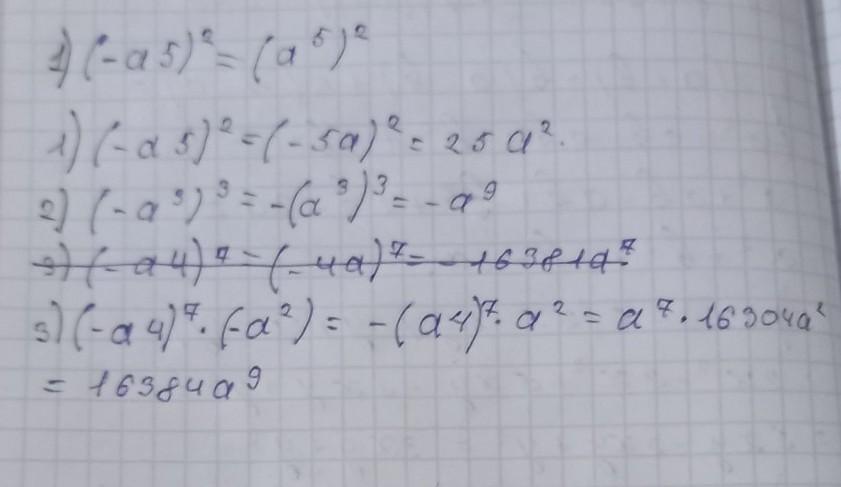 1) (-a 5)² = (a⁵)²
1) (-a 5)² = (-5a)² = 25a².
2) (-a³)³ = -(a³)³ = -a⁹
3) (-a4)⁷ = (-4a)⁷ = -16381a⁷
3) (-a4)⁷ · (-a²) = -(a4)⁷ · a² = a⁷ · 16304a²
= 16384a⁹